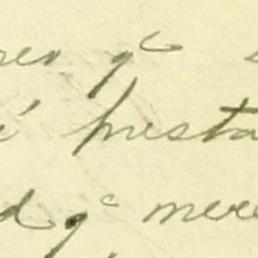 ver qᵉ
í presta
d qᵉ mere